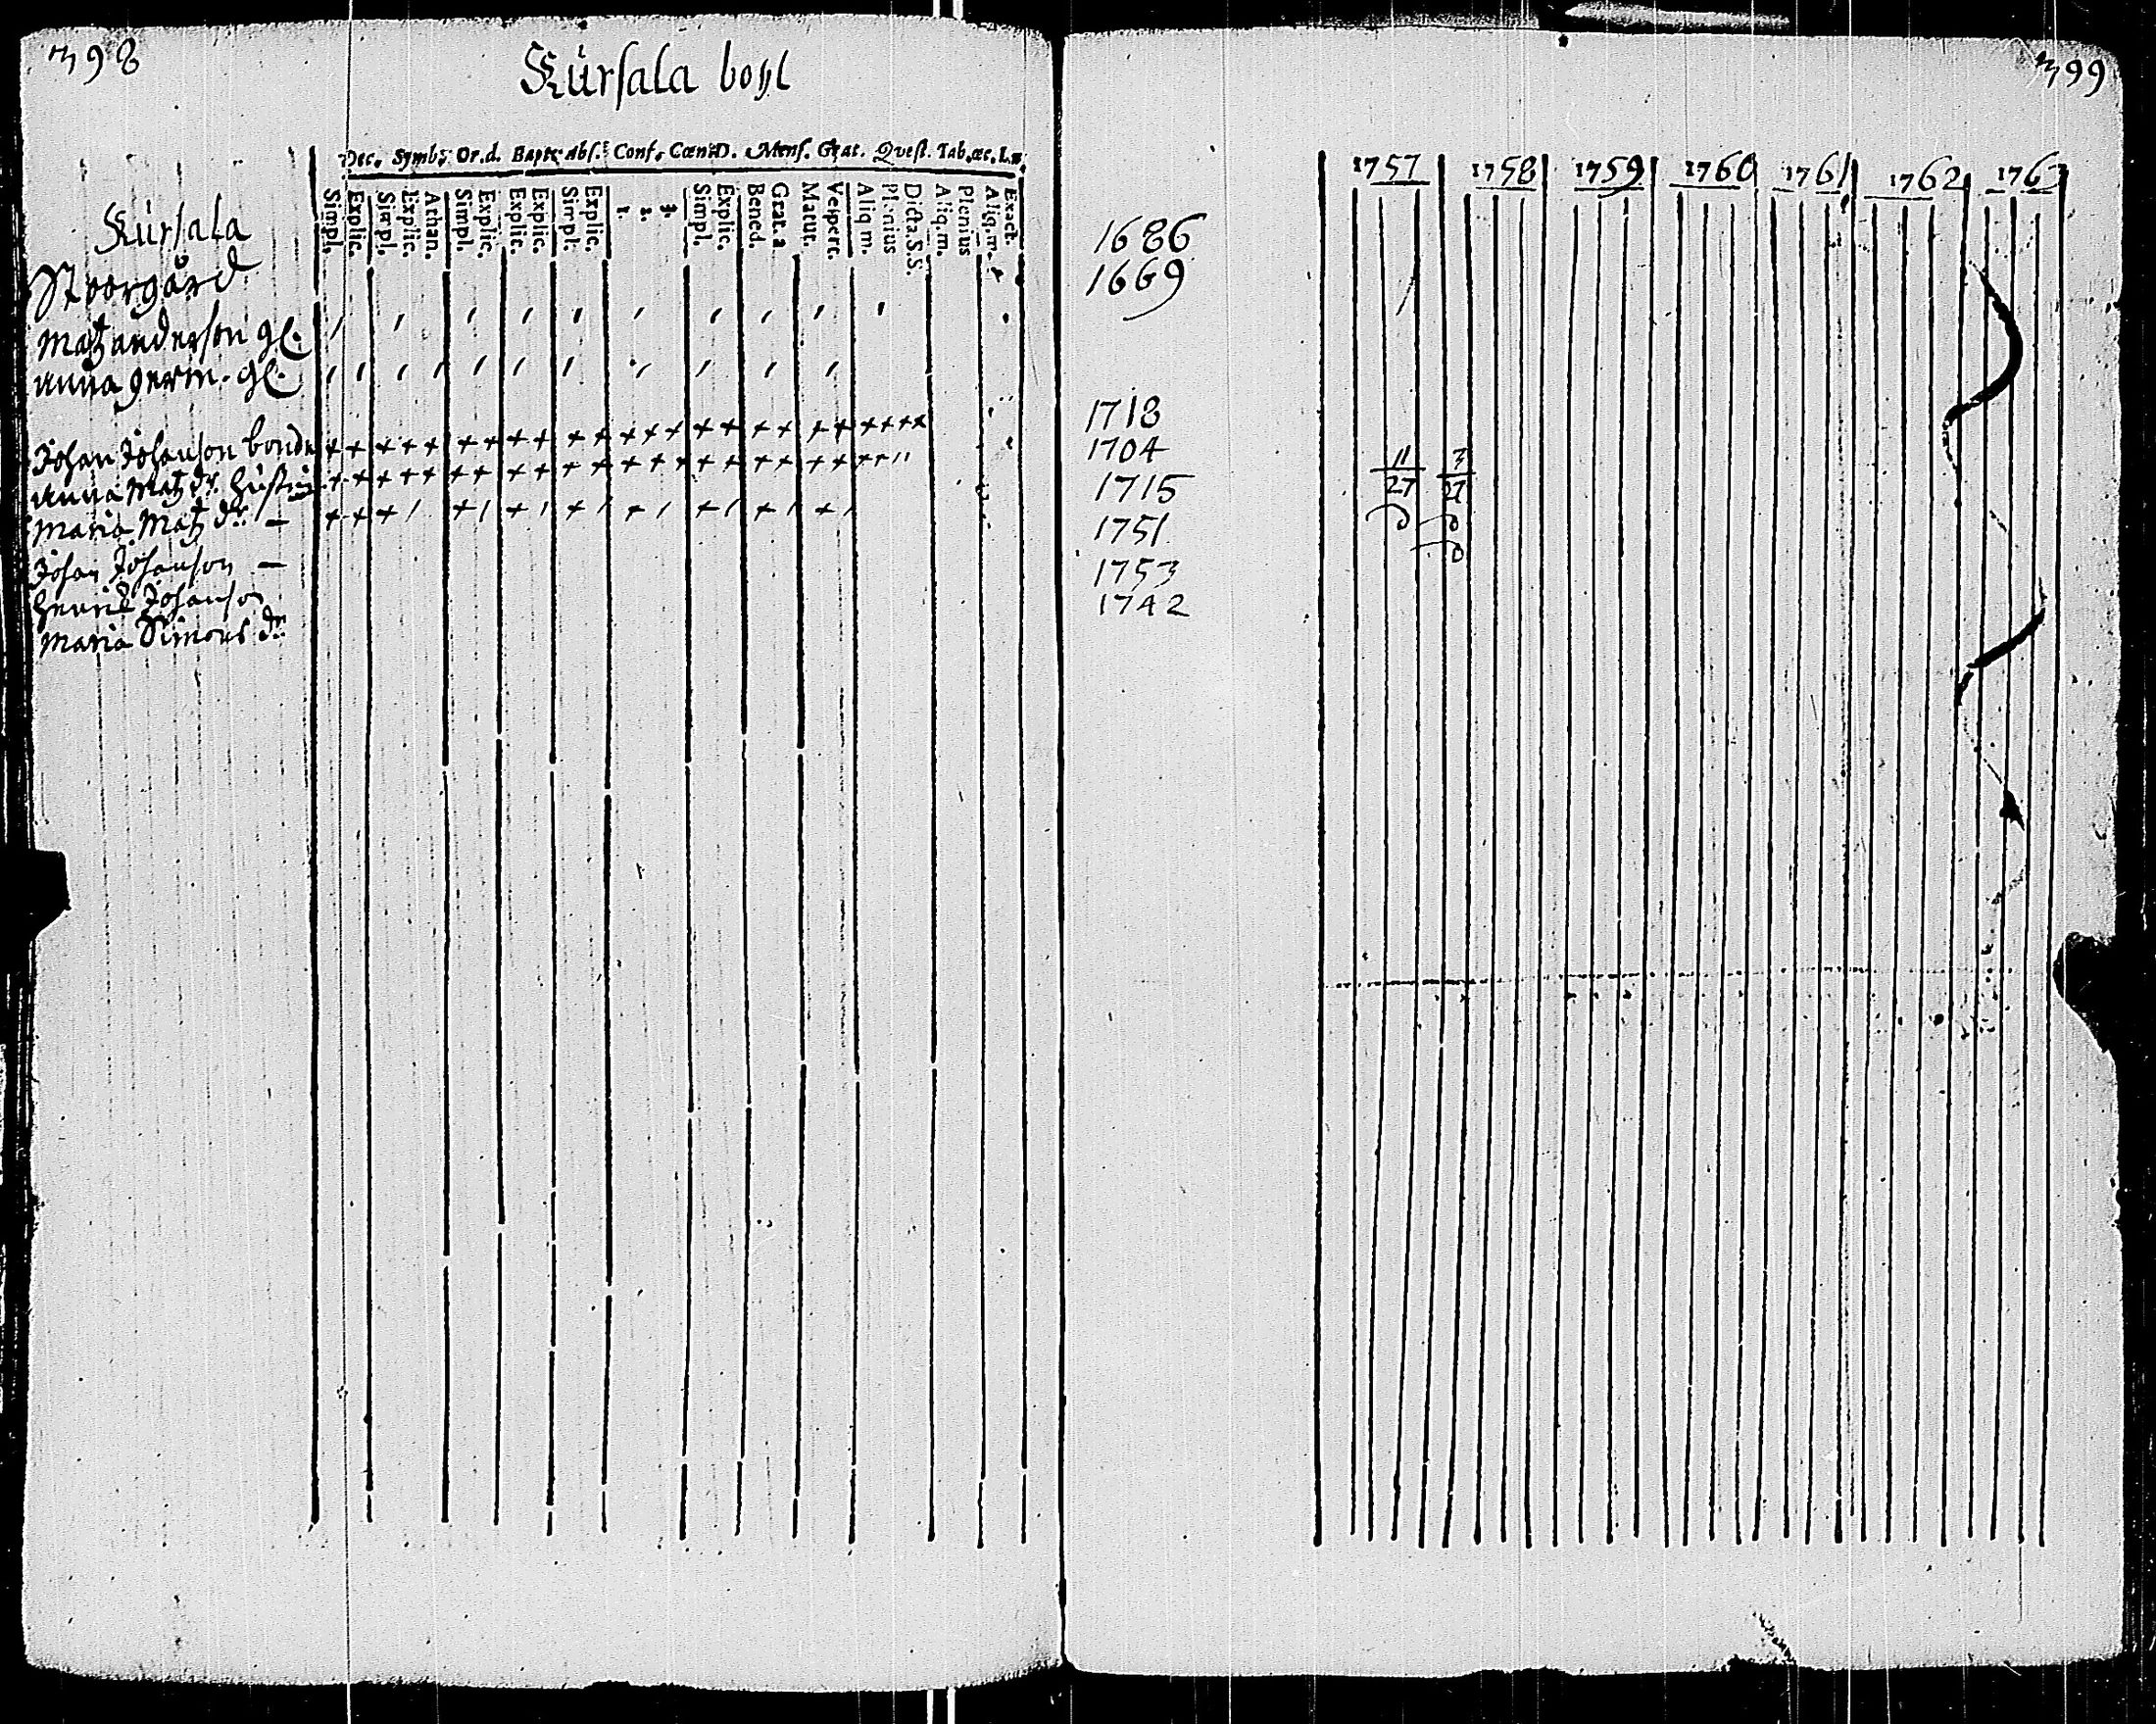 398
Kúrsala boÿl
Dec. Symb. Or.d. Bapt. Abs. Conf. Cœn.D. Mens. Grat. Quest. Tab.œc. L.n.
Simpl. Explic. Simpl. Explic. Athan. Simpl. Explic. Explic. Explic. Simpl. Explic. 1. 2. 3. Simpl. Explic. Bened. Grat.a Matut. Vespert. Aliq m. Plenius Dicta.S.S. Aliq.m. Plenius Aliq.m. Exact.
Kúrsala
Stoorgård
Matz anderson gl.
Anna Herm. gl.
Johan Johanson bonde
Anna Matz dr. Hústrú
Maria Matz dr —
Johan Johanson —
Henrik Johanson
Maria Simons dr
399
1757 1758 1759 1760 1761 1762 1763
1686
1669
1718
1704
1715
1751
1753
1742
11 3
27 27